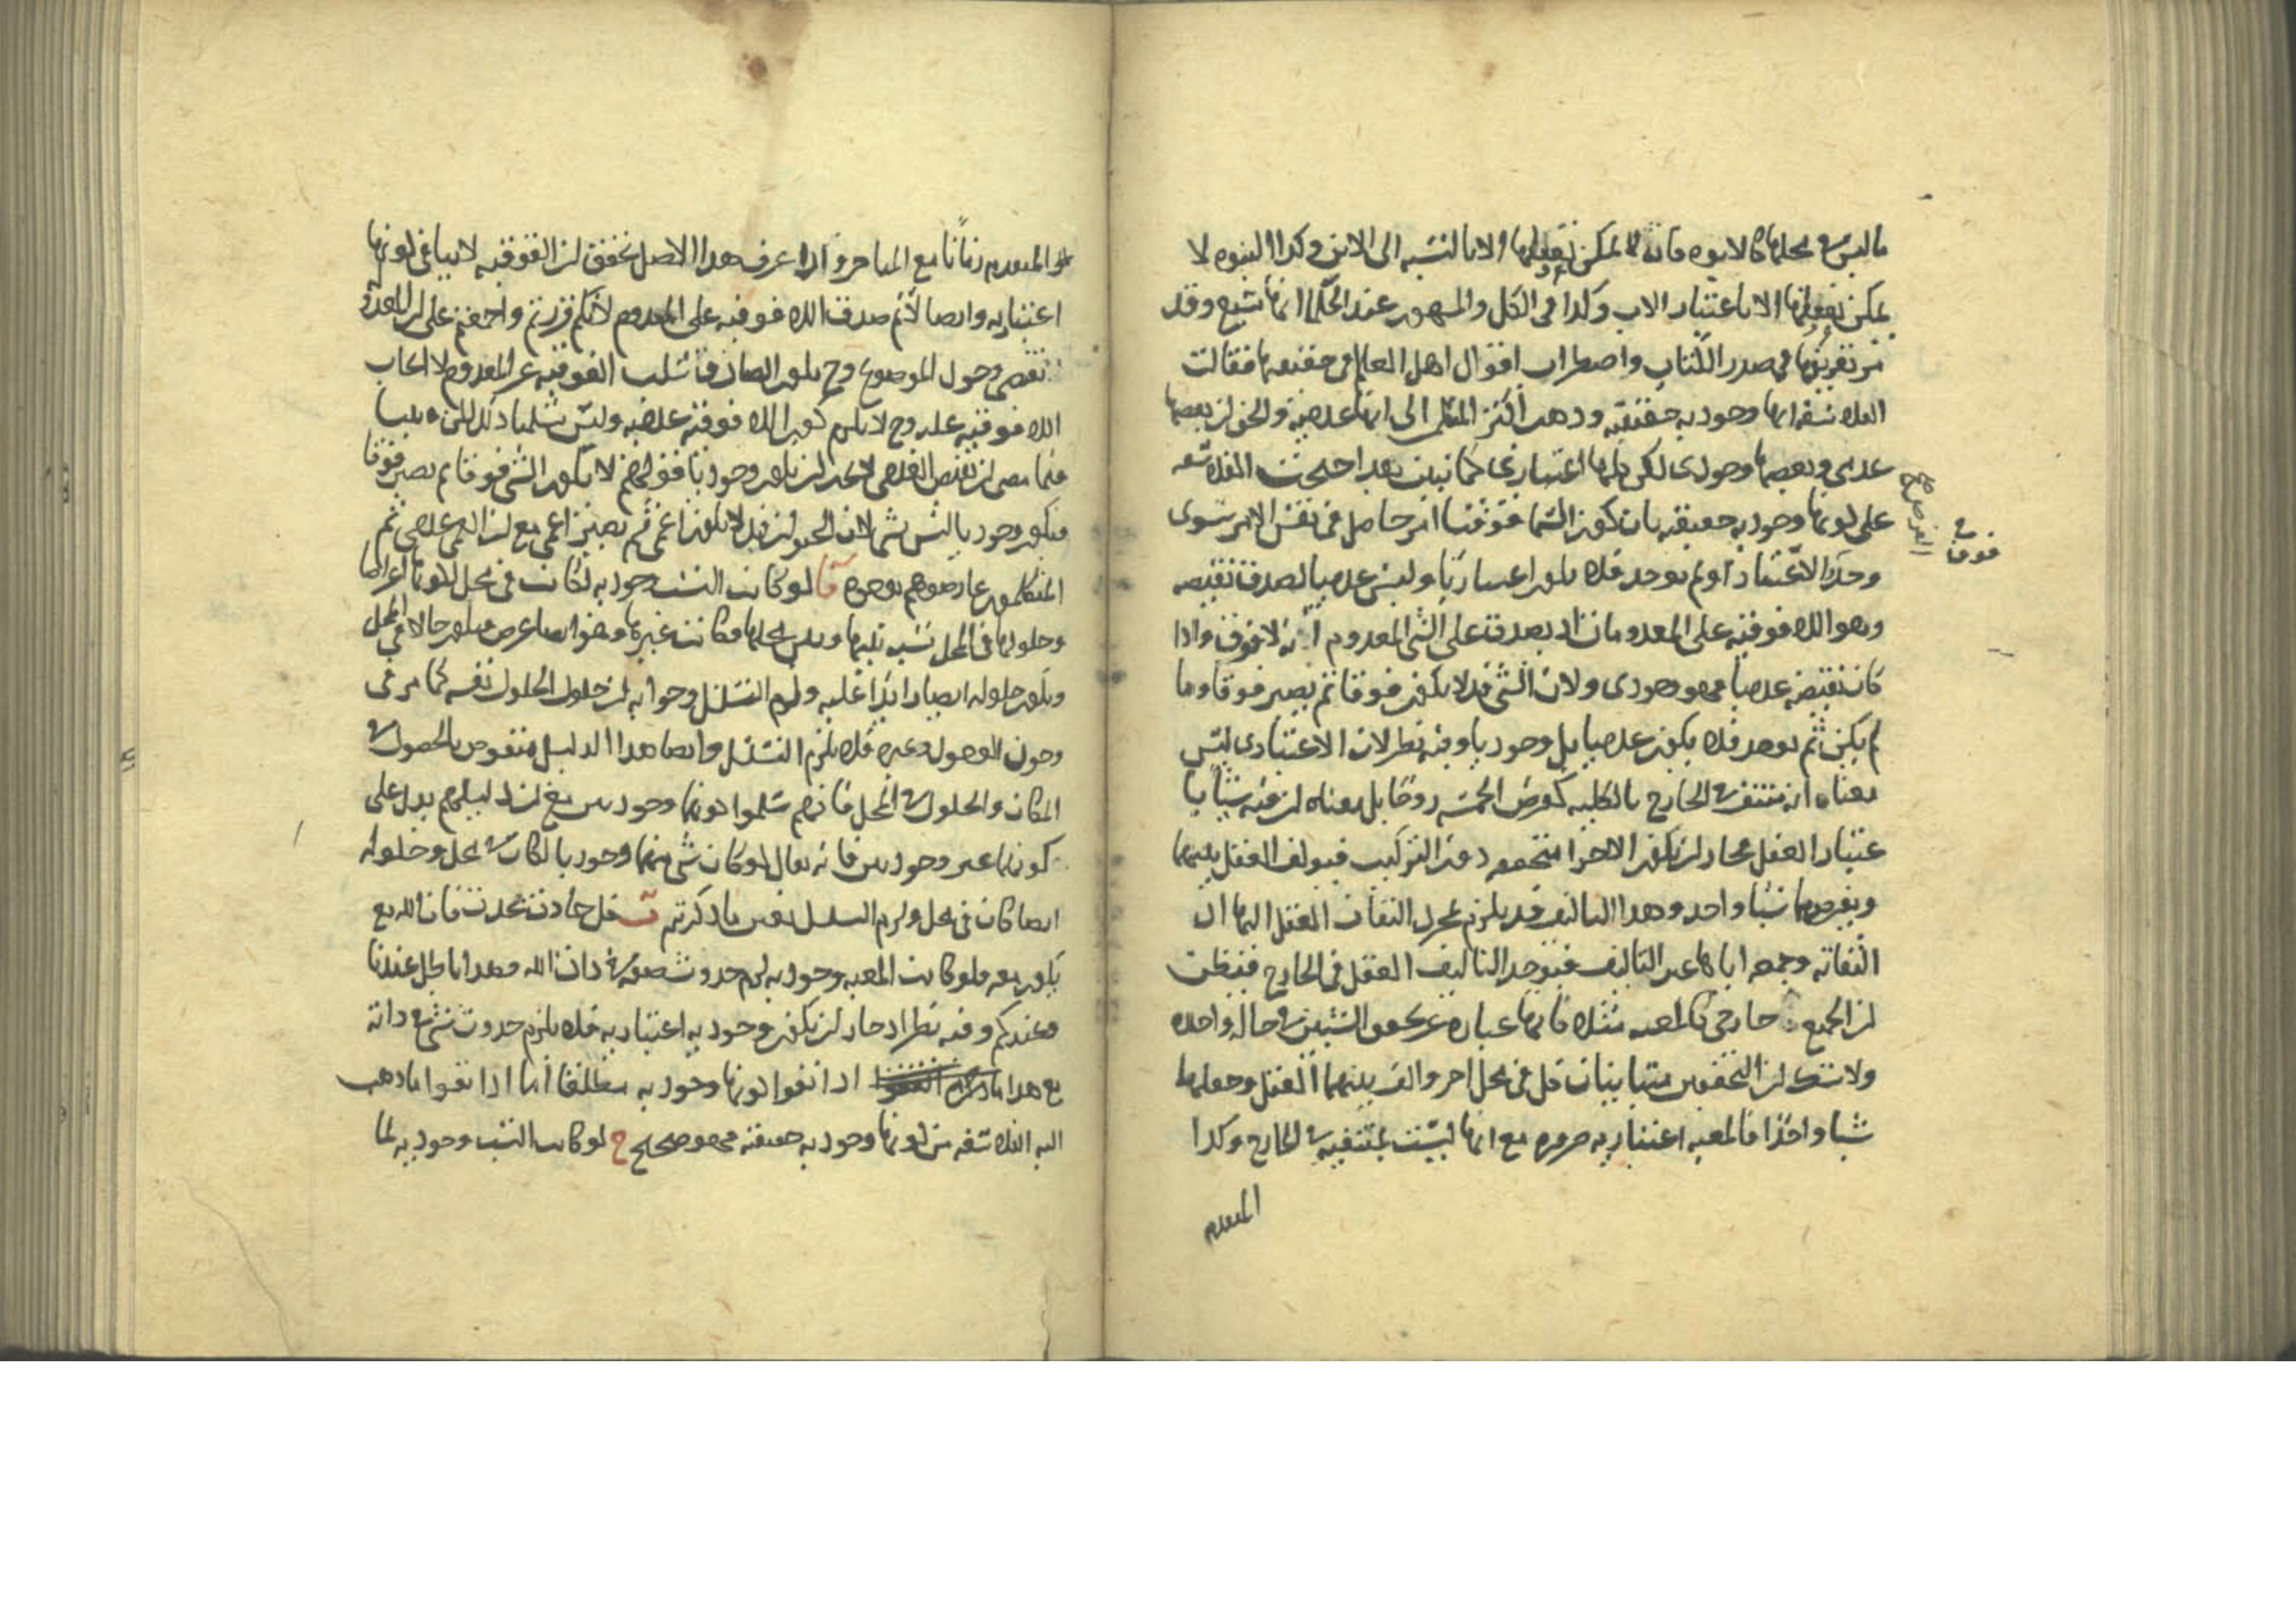 ما ليس في محلها كالابوه فانه لا يمكن تعقلها الا بالنسبه الى الابن وكذا البنوه لا
يمكن تعقلها الا باعتبار الاب وكذا في الكل والمشهور عند الحكما انها سبع وقد
مر تعريفها في صدر الكتاب واضطراب اقوال اهل العالم في حقيقتها فقالت
الفلاسفه انها وجوديه حقيقيه وذهب اكثر المتكلمين الى انها عدميه والحق ان بعضها
عدمي وبعضها وجودي لكن كلها اعتباري كما نبين بعد احتجت الفلاسفه
على كونها وجوديه حقيقيه بان كون السما فوقنا امر حاصل في نفس الامر سوى
وجد الاعتبار او لم يوجد فلا يكون اعتباريا وليس عدميا لصدق نقيضه
وهو اللا فوقيه على المعدوم فانه يصدق على الشي المعدوم انه لا فوق واذا
كان نقيضه عدميا فهو وجودي ولان الشي قد لا يكون فوقا ثم يصير فوقا وما
لم يكن ثم يوجد فلا يكون عدميا بل وجوديا وفيه نظر لان الاعتباري ليس
معناه انه منتف في الخارج بالكليه كفرض الخمسه زوجا بل معناه ان فيه شيا با
عتبار العقل مجاز ان تكون الاجزا متحققه دون التركيب فيولف العقل بينهما
ويفرضها شيا واحدا وهذا التاليف قد يلزم بمجرد التفات العقل اليها ان
التفاته وجمعه اياها عين التاليف فيوجد التاليف العقل في الخارج فيظن
ان الجميع خارجي كالمعيه مثلا فانها عباره عن كون الشيئين في حاله واحده
ولا شك ان الكونين متباينان كل في محل اخر والف بينهما العقل وجعلهما
شيا واحدا فالمعيه اعتباريه ضروره مع انها ليست بمنتفيه في الخارج وكذا
المتقدم
فوق
المتقدم زمانا مع المتاخر واذا عرف هذا الاصل تحقق ان الفوقيه لا ينافي كونها
اعتباريه وايضا لا نم صدق اللا فوقيه على المعدوم لانكم قررتم واجمعتم على ان المعدوله
تقتضي وجود الموضوع وح يكون الصادق سلب الفوقيه عن المعدوم لا ايجاب
اللا فوقيه عليه وح لا يلزم كون اللا فوقيه عدميه وليس سلمنا ذلك لكن بينا
فيما مضى ان نقيض العدمي لا يجب ان يكون وجوديا فولهم لا يكون الشي فوقا ثم يصير فوقا
فيكون وجوديا ليس بشي لان الحيوان قد لا يكون اعمى ثم يصير اعمى مع ان العمى عدمي ثم
المتكلمون عارضوهم بوجوه آ لو كانت النسب وجوديه لكانت في محل لكونها اعراضا
وحلولها في المحل نسبه بينها وبين محلها فكانت غيرها وهو ايضا عرض فيكون حالا في المحل
ويكون حلوله ايضا زايدا عليه ولزم التسلسل وجوابه ان حلول الحلول نفسه كما مر في
وجود الوجود وغيره فلا يلزم التسلسل وايضا هذا الدليل منقوض بالحصول في
المكان والحلول في المحل فانهم سلموا كونهما وجوديين مع ان دليلهم يدل على
كونهما غير وجوديين فانه يقال لو كان شي منهما وجوديا لكان في محل وحلوله
ايضا كان في محل ولزم التسلسل بعين ما ذكرتم ب كل حادث يحدث فان الله مع
يكون معه فلو كانت المعيه وجوديه لزم حدوث صفه في ذات الله وهذا باطل عندنا
وعندكم وفيه نظر اذ جاز ان يكون وجوديه اعتباريه فلا يلزم حدوث شي في ذاته
مع هذا اذا نفوا كونها وجوديه مطلقا اما اذا نفوا ما ذهب
اليه الفلاسفه من كونها وجوديه حقيقيه فهو صحيح ج لو كانت النسب وجوديه لما